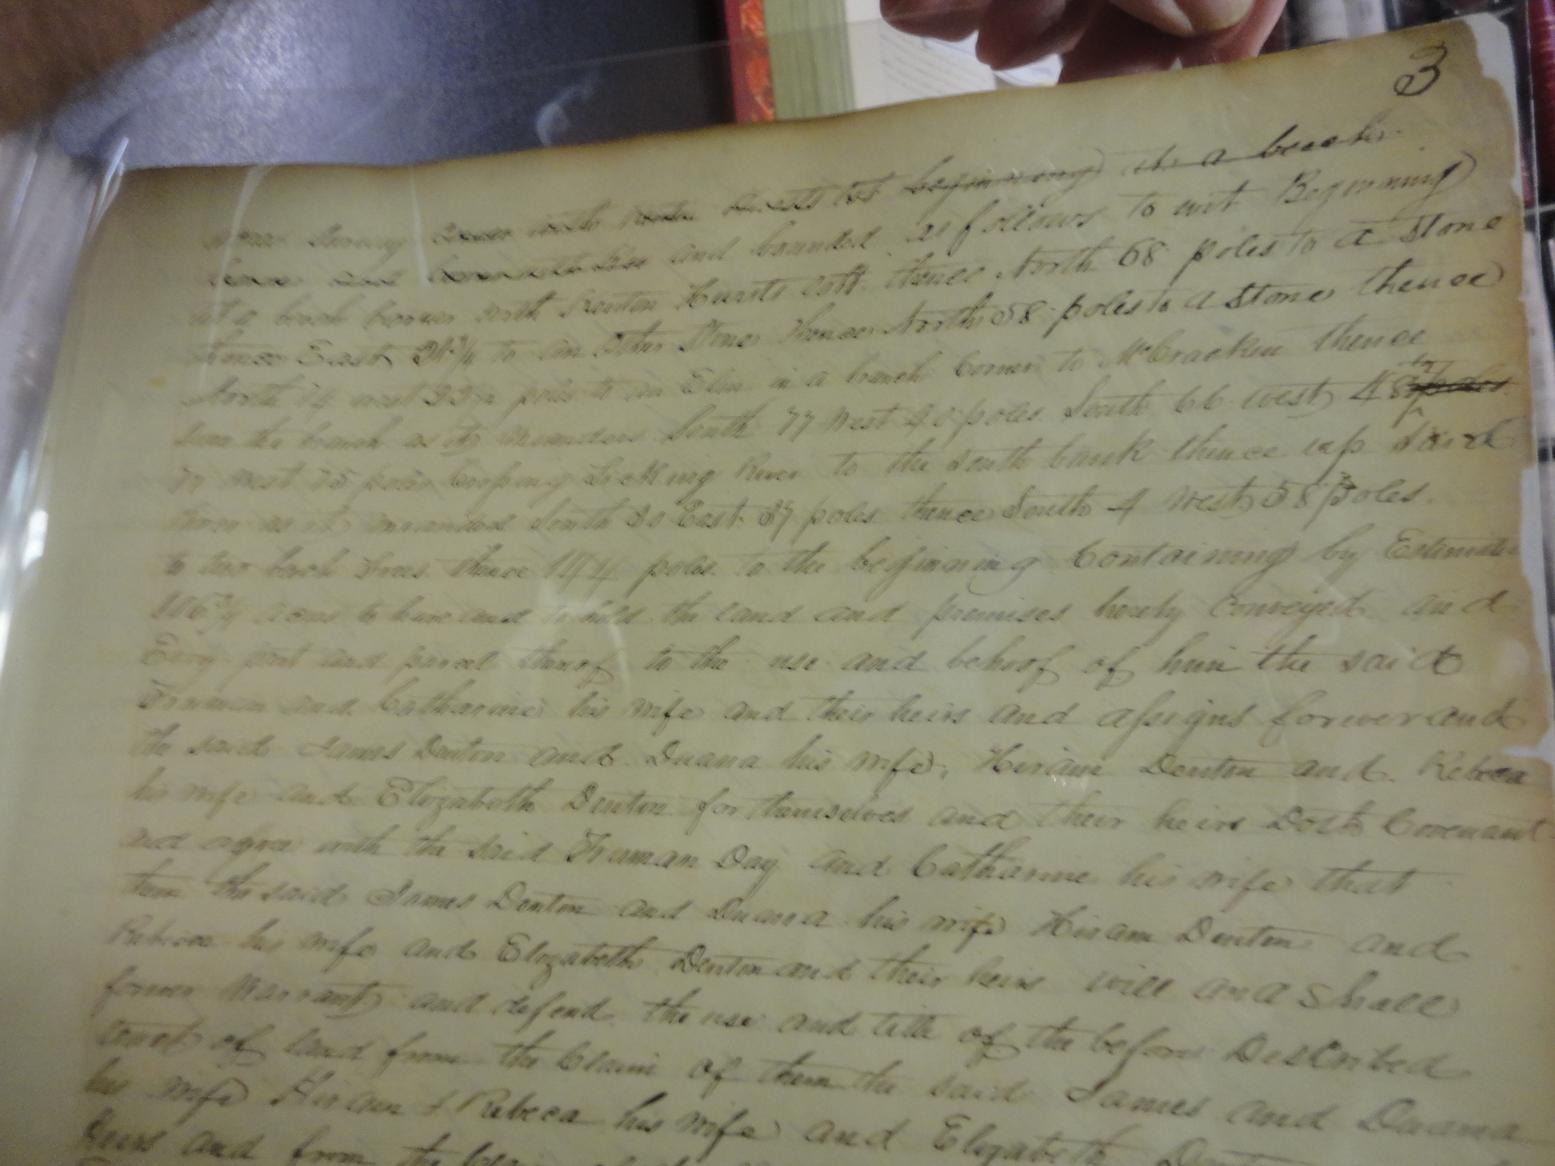 3
beginning at a beech
and bounded as follows to wit Beginning
at a beech corner with Hursts thence North 68 poles to a stone
thence East to an other stone thence North 58 poles to a stone thence
North 14 west poles to an Elm in a branch corner to McCracken thence
down the branch as it meanders South 77 West 40 poles South 66 west 48
77 west 75 poles Crossing Licking River to the South bank thence up said
River as it meanders South 20 East 37 poles thence South 4 West 58 poles
to two beech trees thence 174 poles to the beginning Containing by Estimate
acres to have and to hold the land and premises hereby conveyed and
Every part and parcel thereof to the use and behoof of him the said
Truman and Catharine his wife and their heirs and assigns forever and
the said James Denton and Duana his wife, Hiram Denton and Rebeca
his wife and Elizabeth Denton for themselves and their heirs Doth Covenant
and agree with the said Truman Day and Catharine his wife that
them the said James Denton and Duana his wife Hiram Denton and
Rebeca his wife and Elizabeth Denton and their heirs will and shall
forever Warrant and defend the use and title of the before Described
tract of land from the Claim of them the said James and Duana
his wife Hiram & Rebeca his wife and Elizabeth
heirs and from the